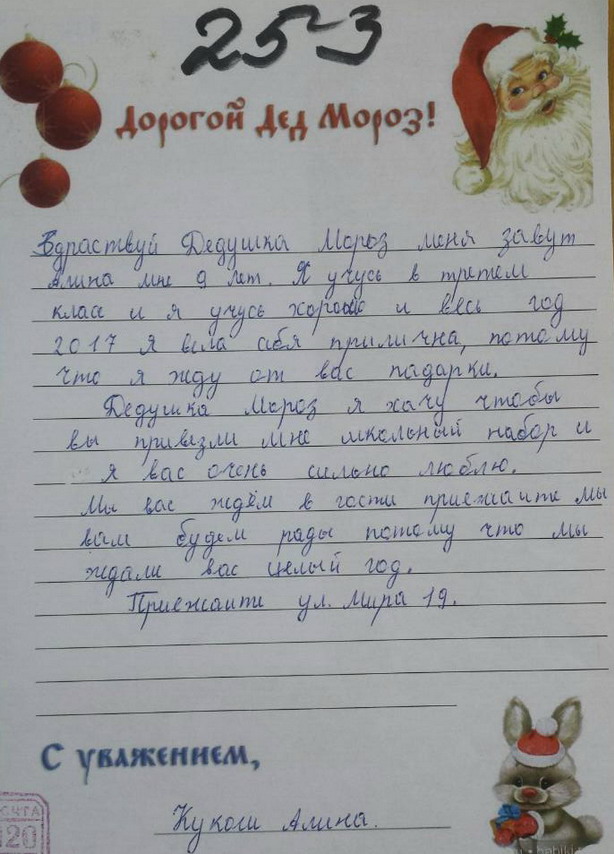 25-3
Дорогой Дед Мороз!
Вдраствуй Дедушка Мороз меня завут
Алина мне 9 лет. Я учусь в третем
класе и я учусь хорошо и весь год
2017 я вела себя прилична, потому
что я жду от вас падарки.
Дедушка Мороз я хачу чтобы
вы привезли мне школьный набор и
я вас очень сильно люблю.
Мы вас ждём в гости приежаите мы
вам будем рады потому что мы
ждали вас целый год.
Приежаити ул. Мира 19.
С уважением,
Кукош Алина.
20